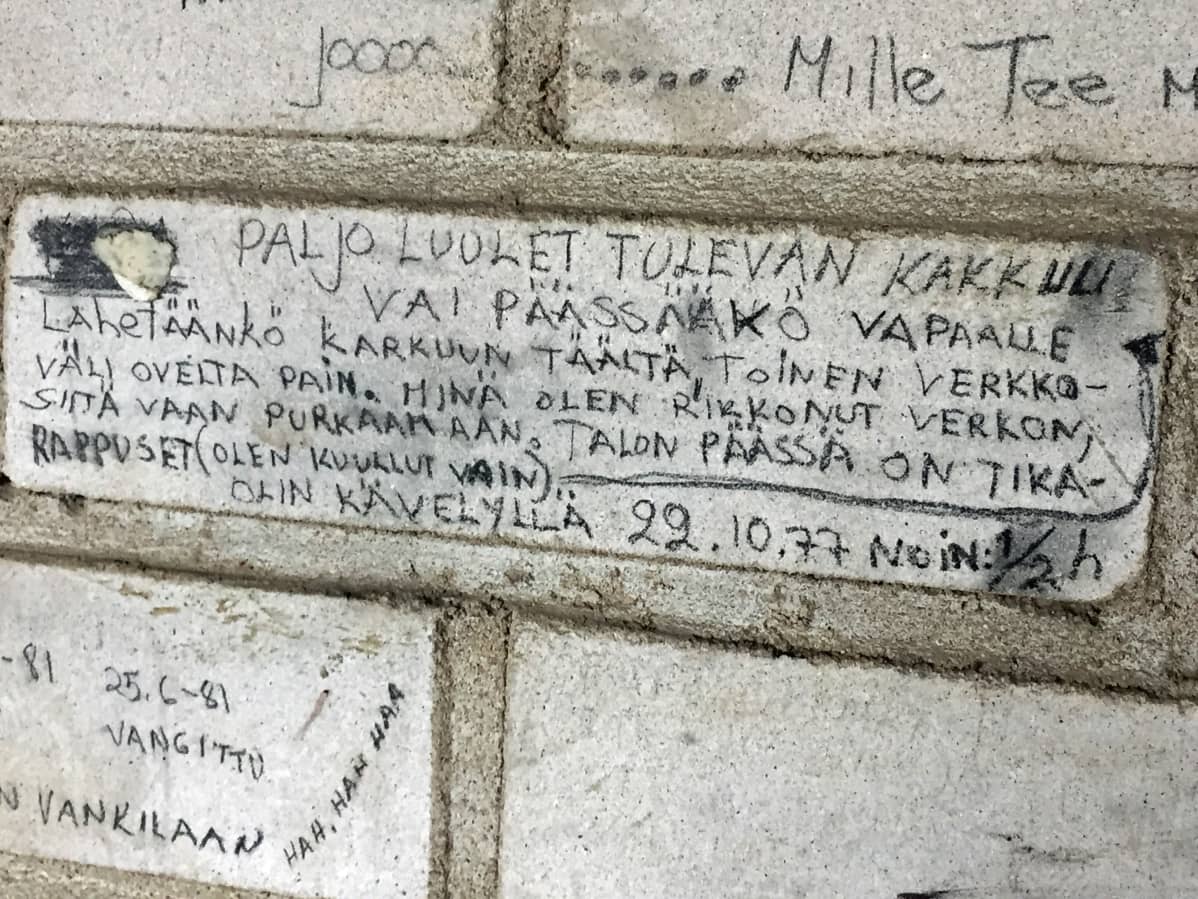 joooo
...... Mille Tee M
PALJO LUULET TULEVAN KAKKUU
VAI PÄÄSSÄÄKÖ VAPAALLE
LÄHETÄÄNKÖ KARKUUN TÄÄLTÄ, TOINEN VERKKO-
VÄLI OVELTA PAIN. MINÄ OLEN RIKKONUT VERKON,
SIITÄ VAAN PURKAAMAAN. TALON PÄÄSSÄ ON TIKA-
RAPPUSET (OLEN KUULLUT VAIN).
OLIN KÄVELYLLÄ 22.10.77 NOIN: 1/2 h
-81 25.6-81
VANGITTU
N VANKILAAN
HAH, HAH HAA